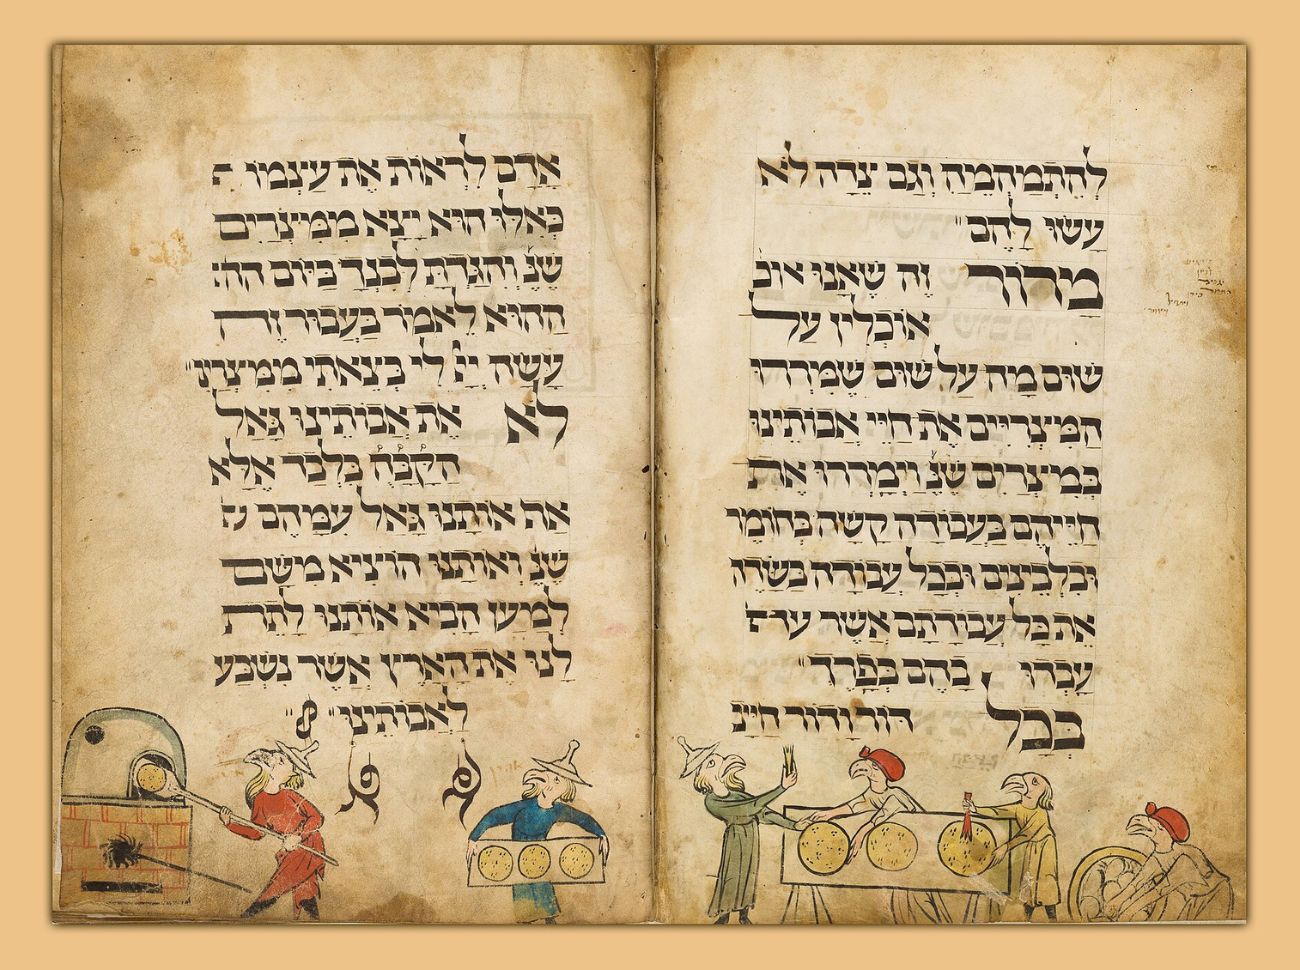 להתמהמה וגם צדה לא
עשו להם"
מרור זה שאנו אוכ
אוכלין על
שום מה על שום שמררו
המצריים את חיי אבותינו
במצרים שנ וימררו את
חייהם בעבודה קשה בחומר
ובלבינים ובכל עבודה בשדה
את כל עבודתם אשר
עבדו בהם בפרך"
בכל דור ודור חייב
אדם לראות את עצמו
כאלו הוא יצא ממיצרים
שנ והגדת לבנך ביום הה
ההוא לאמר בעבור זה
עשה ייי לי בצאתי ממיצרים"
לא את אבותינו גאל
הקבה בלבד אלא
אף אותנו גאל עמהם
שנ ואותנו הוציא משם
למען הביא אותנו לתת
לנו את הארץ אשר נשבע
לאבותינו"